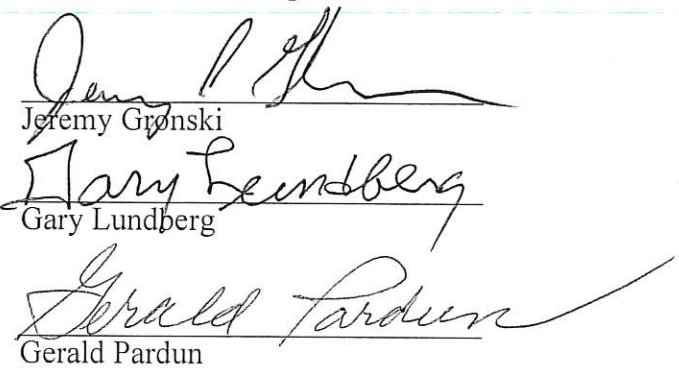 Jeremy Gronski
Gary Lundberg
Gary Lundberg
Gerald Pardun
Gerald Pardun